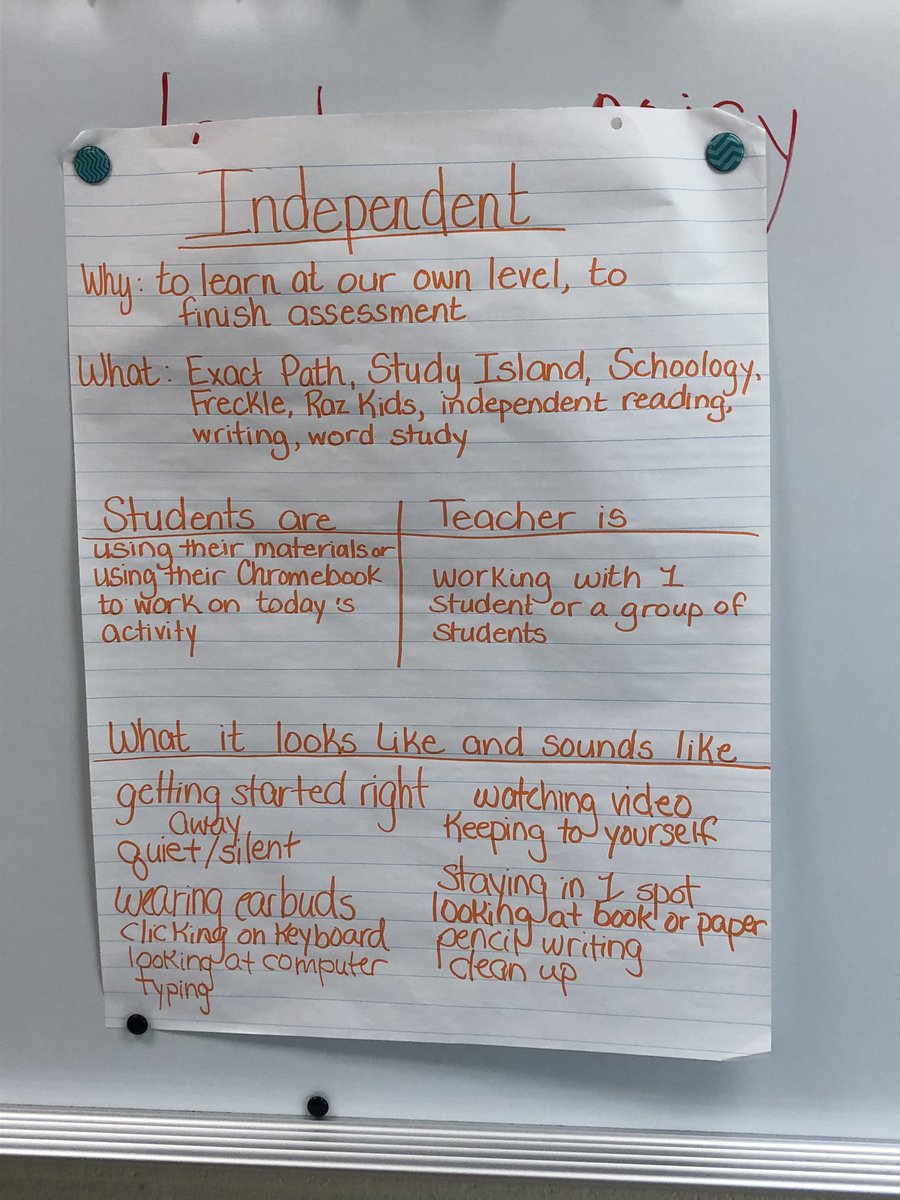 Independent
Why: to learn at our own level, to
finish assessment
What: Exact Path, Study Island, Schoology,
Freckle, Raz Kids, independent reading,
writing, word study
Students are
using their materials or
using their Chromebook
to work on today's
activity
Teacher is
working with 1
student or a group of
students
What it looks like and sounds like
getting started right
away
quiet/silent
wearing earbuds
clicking on keyboard
looking at computer
typing
watching video
Keeping to yourself
staying in 1 spot
looking at book or paper
pencil writing
clean up